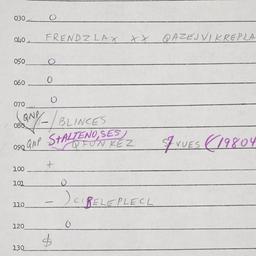 030 O
040 FRENDZLAX XX QAZEJVIKREPLA
050 O
060 O
070 O
080 (QNP/-/BLINCES
090 QNP S+ALTENO,SES) QFUNKEZ 7 VUES (19804
100 +
101 O
110 - ) CIBELEPLECL
120 O
130 $